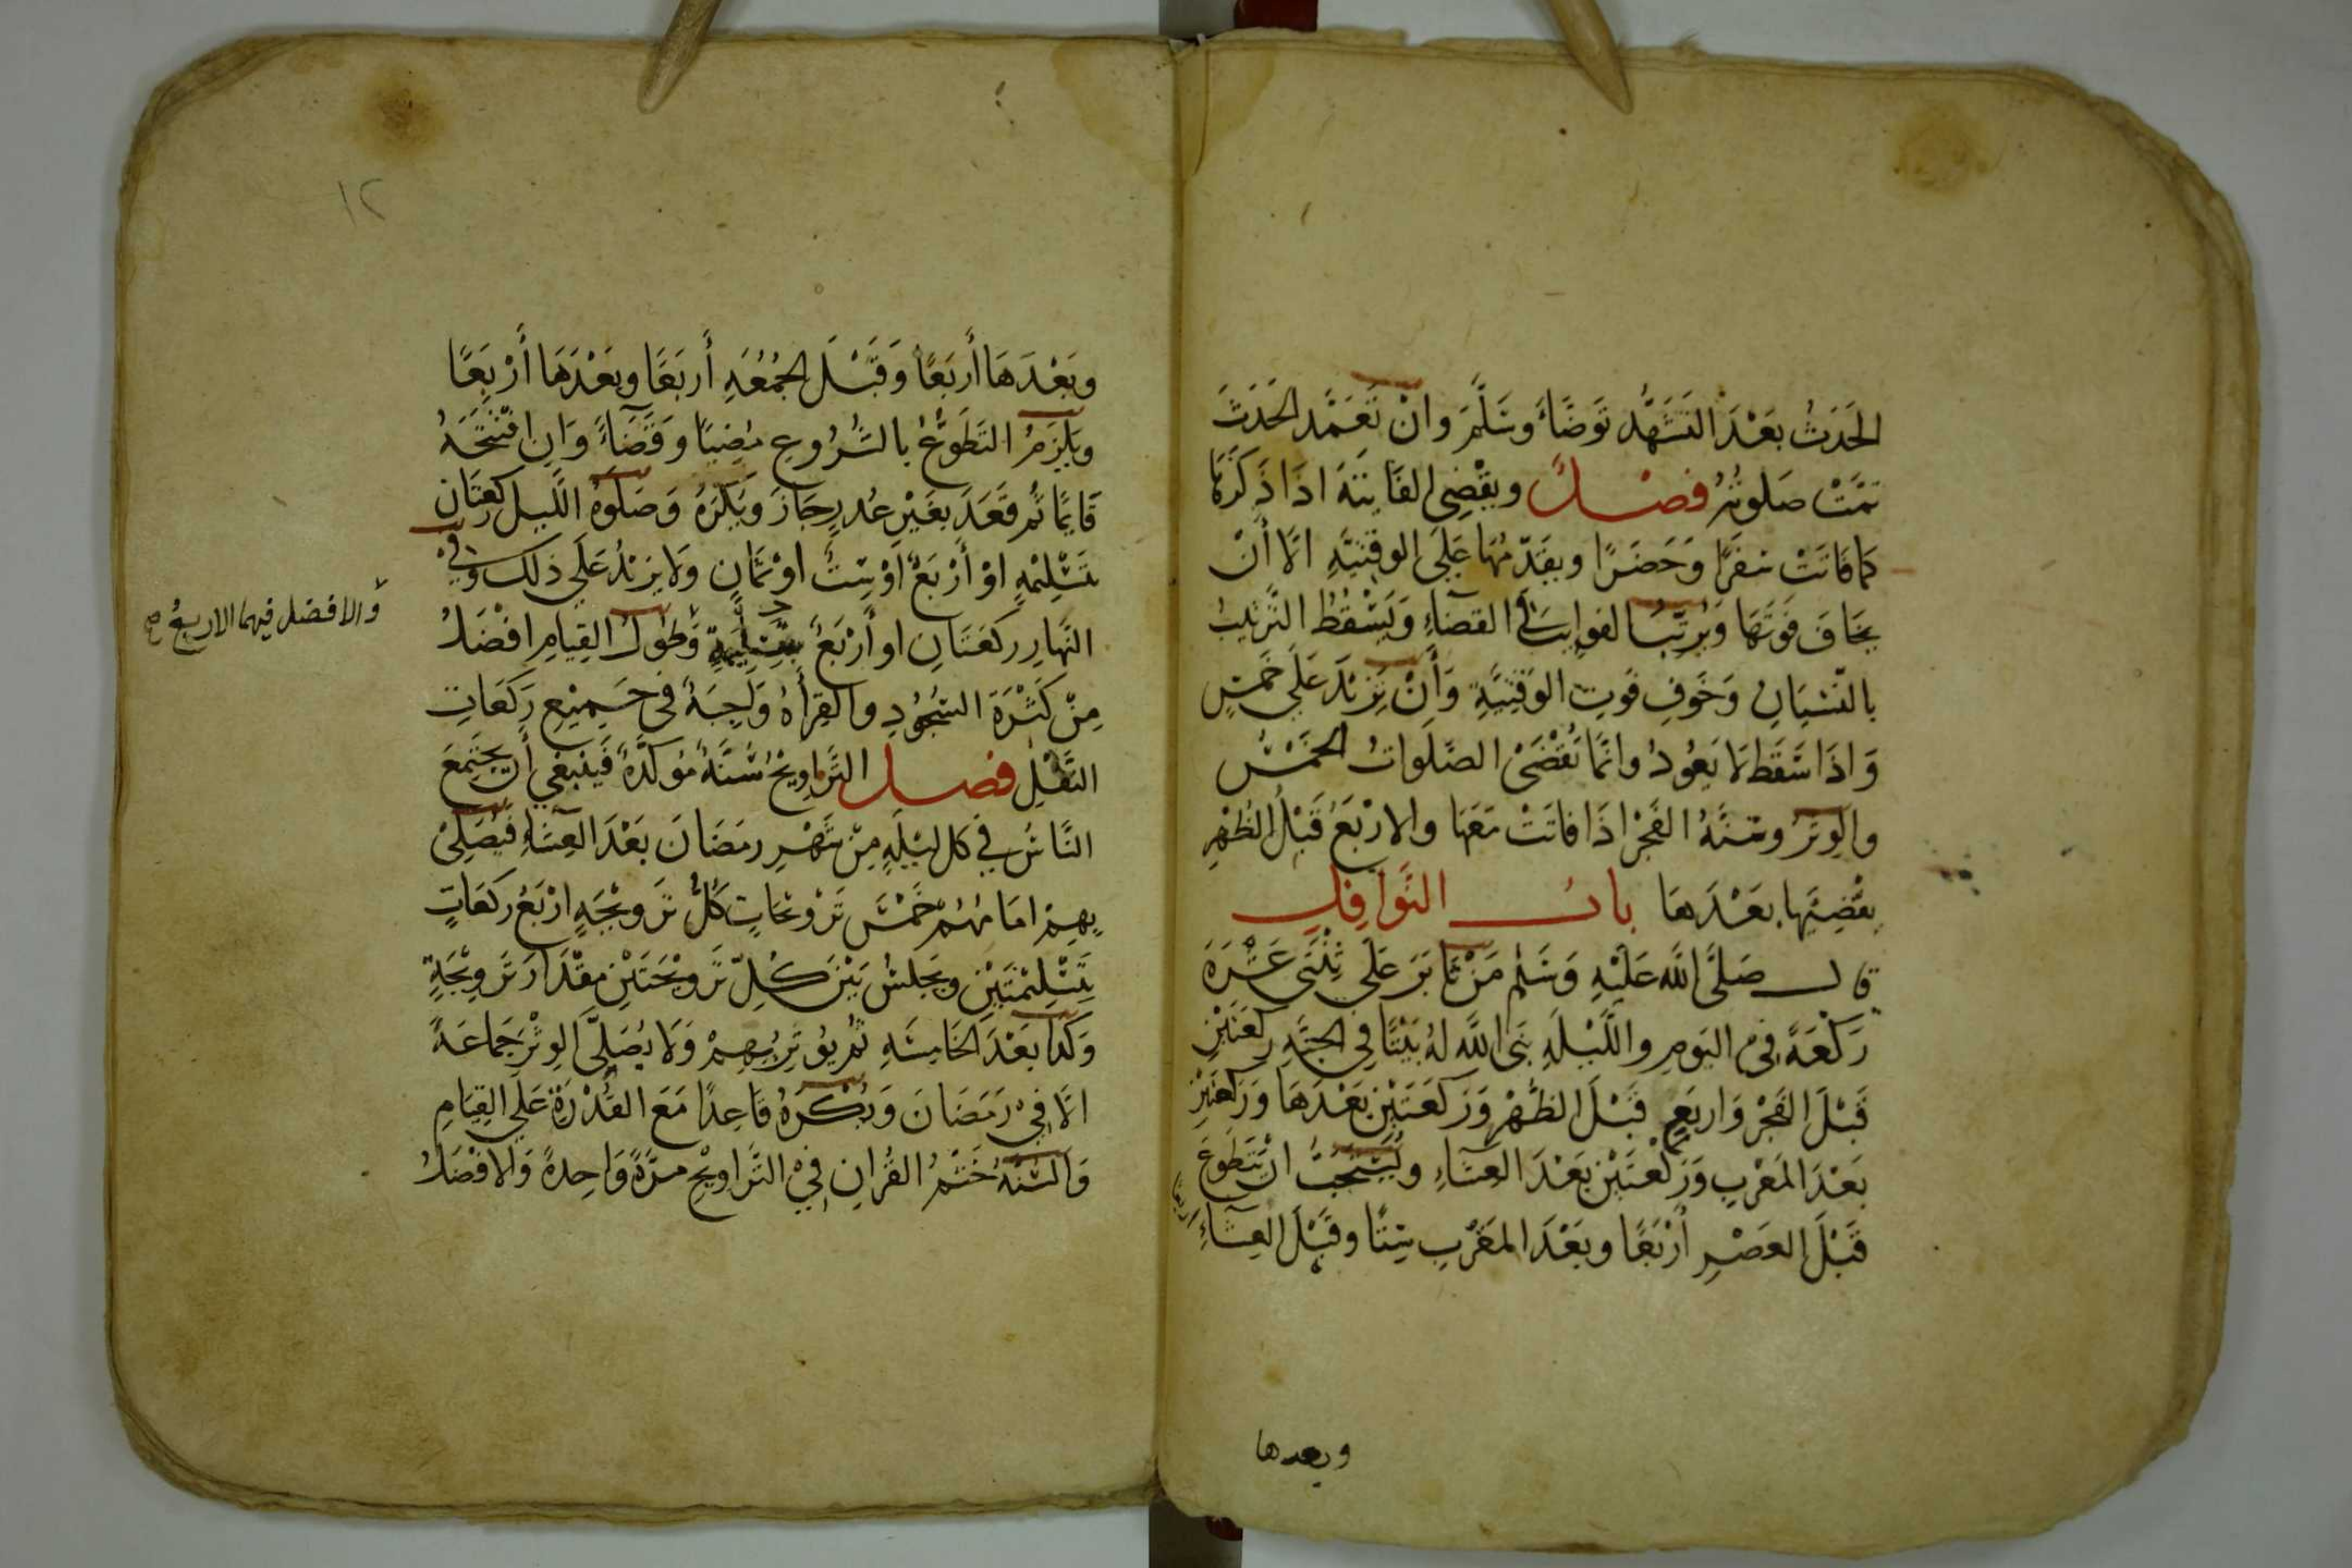 الحَدَثُ بَعْدَ التَشَهُّدِ تَوَضَّاءَ وَسَلَّمَ وَانْ تَعَمَّدَ الحَدَثَ
تمَّتْ صَلوتُهُ فصْلٌ ويَقْضِي الفَايتَةَ اذَا ذَكَرَهَا
كمَا فَاتَتْ سَفَرًا وَحَضَرًا ويقَدِّمُهَا عَلَى الوقتيَّةِ الَّا أَنْ
يخَافَ فَوتَهَا وَيُرَتِّبُ الفوايتَ فِي القضَاءِ وَيَسْقُطُ التَّرْتِيبُ
بالنّسْيَانِ وَخَوفِ فَوتِ الوَقتِيَّةِ وَأَنْ تَزِيْدَ عَلَى خَمْسٍ
وَاذَا سَقَطَ لَا يَعُودُ وانَّمَا تُقْضَى الصَّلَوَاتُ الخَمْسُ
والوِترُ وسُنَّةُ الفَجْرِ اذَا فَاتَتْ مَعَهَا والارْبَعُ قَبْلَ الظُهْرِ
يقْضِيَهَا بَعْدَهَا بابُ النَّوَافِلِ
قال صَلَّى اللّه عَلَيْهِ وَسَلم مَنْ ثَابَرَ عَلَى ثِنْتَى عَشْرَةَ
رَكْعَةً فِي اليَومِ واللَّيْلَةِ بَنَى اللَّه لهُ بَيْتًا فِي الجنَّةِ ركعَتَيْنِ
قَبْلَ الفَجْرِ وَاربَعٍ قَبْلَ الظُّهْرِ وَرَكعَتَيْنِ بَعْدَهَا وَرَكْعَتَيْنِ
بَعْدَ المَغْرِبِ وَرَكْعَتَيْنِ بَعْدَ العِشَاءِ ويُسْتَحَبُّ انْ يَتَطَوَّعَ
قَبْلَ العَصْرِ أَرْبَعًا وبَعْدَ المَغْرِبِ سِتًّا وقَبْلَ العِشَاءِ اربعًا
وبعدها
١٢
وبَعْدَهَا أَربَعًا وَقَبْلَ الجُمُعَةِ أَربَعًا وبَعْدَهَا أَرْبَعًا
ويَلزَمُ التَطَوُّعُ بالشُرُوعِ مُضِيًا وَقَضَاءً وَانِ افْتَتَحَهُ
قَايمًا ثُم قَعَدَ بغَيْرِ عُذرٍ جَازَ وَيُكْرَهُ وَصَلَوةُ اللَّيلِ ركعتَانِ
بتَسْلِيْمَةٍ اوْ أَرْبَعٌ أَوْ سِتٌّ اوْ ثَمَانٍ وَلَا يَزِيْدُ عَلَى ذلك وَفِي
النَّهَارِ ركعَتَانِ او أَرْبَعٌ بتَسْلِيمَةٍ وَطُولُ القِيَامِ افْضَلُ
والافضل فيهما الاربعُ صح
مِنْ كَثْرَةِ السُجُودِ والقِرأَةُ وَاجِبَةٌ فى جَمِيْعِ رَكَعَاتِ
النَّفْلِ فصل التَّرَاوِيْحُ سُنَّةٌ مُوَكَّدَةٌ فَيَنبَغي أَن يَجْتَمِعَ
النَّاسُ فِي كلِ لَيْلَةٍ مِنْ شَهْرِ رمَضَانَ بَعْدَ العِشَاءِ فَيُصَلِّى
بِهِمْ امَامُهُمْ خَمْسَ تَرْوِيحَاتٍ كلُّ تَروِيْحَةٍ ارْبَعُ رَكعَاتٍ
بتَسْلِيْمَتَيْنِ ويَجْلسُ بَيْنَ كُلِّ تَروِيْحَتَيْنِ مقْدَارَ تَروِيْحَةٍ
وَكَذا بَعْدَ الخَامِسَةِ ثُمَّ يُوتِرُ بِهِمْ وَلَا يُصَلِّى الوِتْرَ جَمَاعَةً
الَّا فِيْ رَمَضَانَ وَيُكْرَهُ قَاعِدًا مَعَ القُدْرَةِ عَلَى القِيَامِ
وَالسُّنَّةُ خَتْمُ القُرْانِ فِيْ التَّرَاوِيْحِ مرَّةً وَاحِدةً وَالافْضَلُ